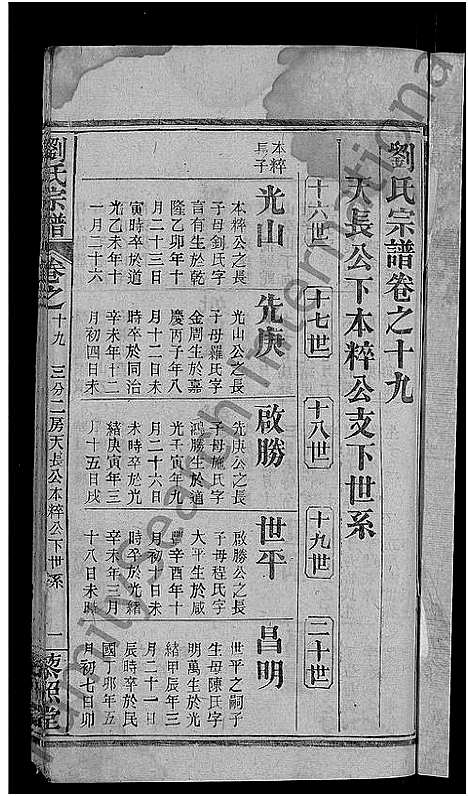 劉氏宗譜卷之十九
天長公下本粹公支下世系
十六世
十七世
十八世
十九世
二十世
本粹
長子
光山
本粹公之長
子母劉氏字
言有生於乾
隆乙卯年十
月二十三日
寅時卒於道
光乙未年十
一月二十六
先庚
光山公之長
子母羅氏字
金周生於嘉
慶丙子年八
月十二日未
時卒於同治
辛未年十二
月初四日未
啟勝
先庚公之長
子母施氏字
鴻勝生於道
光壬寅年九
月二十六日
未時卒於光
緒庚寅年三
月十五日戌
世平
啟勝公之長
子母程氏字
大平生於咸
豐辛酉年十
月初十日未
時卒於光緒
辛未年三月
十八日未時
昌明
世平之嗣子
生母陳氏字
明萬生於光
緒甲辰年三
月二十一日
辰時卒於民
國丁卯年五
月初七日卯
劉氏宗譜
卷之
十九
三分二房天長公本粹公下世系
一